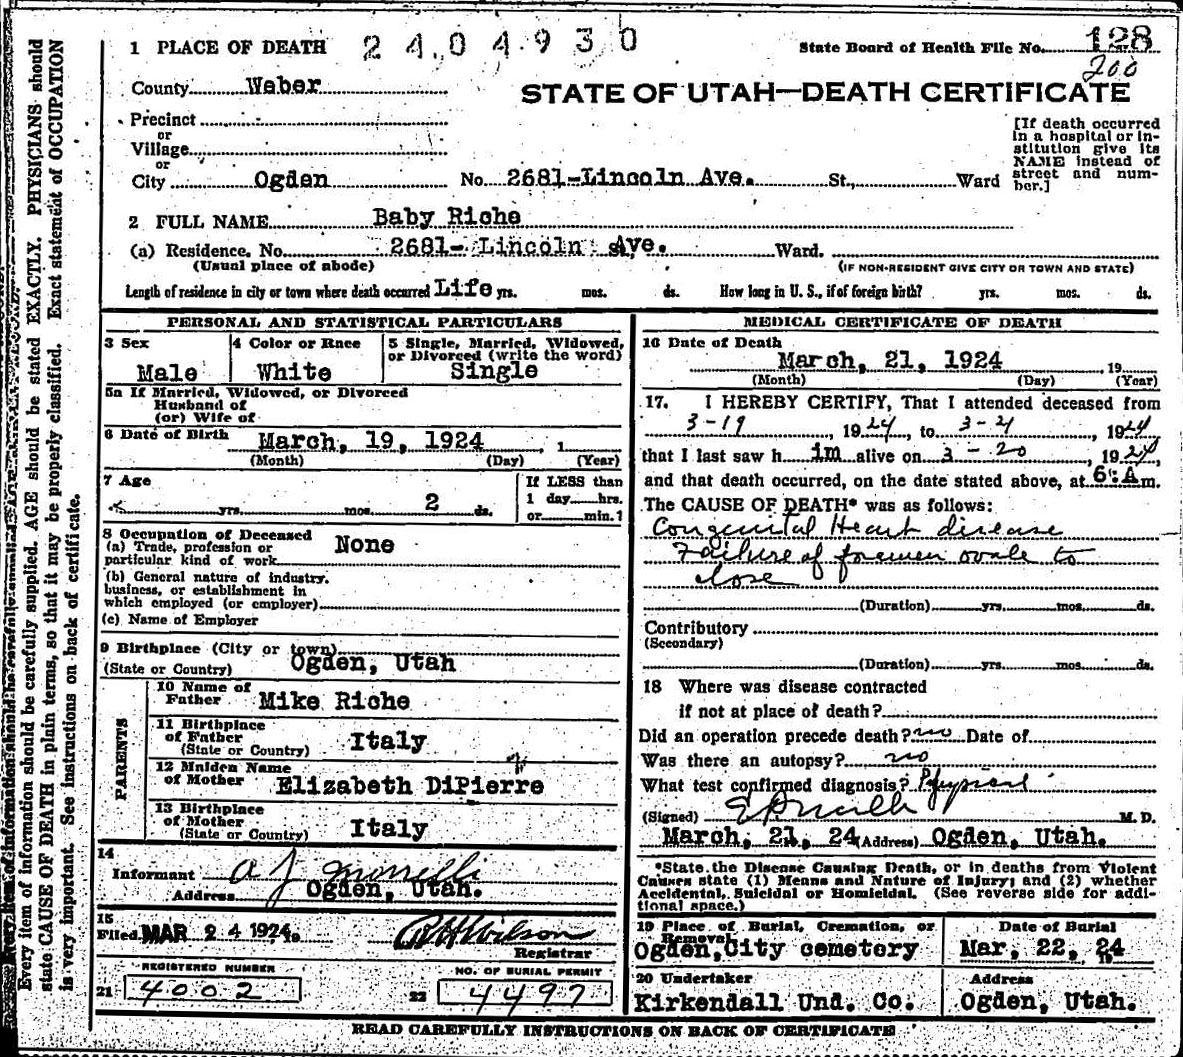 1 PLACE OF DEATH 2404930 State Board of Health File No. 128
200
County Weber
STATE OF UTAH—DEATH CERTIFICATE
Precinct
or
Village
or
City Ogden No. 2681-Lincoln Ave. St., Ward
[If death occurred
in a hospital or in-
stitution give its
NAME instead of
street and num-
ber.]
2 FULL NAME Baby Riche
(a) Residence. No. 2681- Lincoln Ave. Ward.
(Usual place of abode) (IF NON-RESIDENT GIVE CITY OR TOWN AND STATE)
Length of residence in city or town where death occurred Life yrs. mos. ds. How long in U. S., if of foreign birth? yrs. mos. ds.
PERSONAL AND STATISTICAL PARTICULARS
3 Sex
Male
4 Color or Race
White
5 Single, Married, Widowed,
or Divorced (write the word)
Single
5a If Married, Widowed, or Divorced
Husband of
(or) Wife of
6 Date of Birth March, 19, 1924, 1
(Month) (Day) (Year)
7 Age
yrs. mos. 2 ds.
If LESS than
1 day hrs.
or min.?
8 Occupation of Deceased
(a) Trade, profession or
particular kind of work None
(b) General nature of industry.
business, or establishment in
which employed (or employer)
(c) Name of Employer
9 Birthplace (City or town)
(State or Country) Ogden, Utah
PARENTS
10 Name of
Father Mike Riche
11 Birthplace
of Father
(State or Country) Italy
12 Maiden Name
of Mother Elizabeth DiPierre
13 Birthplace
of Mother
(State or Country) Italy
14
Informant A J Morrelli
Address Ogden, Utah.
15
Filed MAR 24 1924
R H Wilson
Registrar
REGISTERED NUMBER
21 4002
NO. OF BURIAL PERMIT
22 4497
MEDICAL CERTIFICATE OF DEATH
16 Date of Death
March, 21, 1924, 19
(Month) (Day) (Year)
17. I HEREBY CERTIFY, That I attended deceased from
3-19, 1924, to 3-21, 1924
that I last saw h im alive on 3-20, 1924,
and that death occurred, on the date stated above, at 6: A m.
The CAUSE OF DEATH* was as follows:
Congenital Heart disease
Failure of foramen ovale to
close
(Duration) yrs. mos. ds.
Contributory
(Secondary)
(Duration) yrs. mos. ds.
18 Where was disease contracted
if not at place of death?
Did an operation precede death? no Date of
Was there an autopsy? no
What test confirmed diagnosis? Physical
(Signed) M. D.
March, 21, 24 (Address) Ogden, Utah.
*State the Disease Causing Death, or in deaths from Violent
Causes state (1) Means and Nature of Injury; and (2) whether
Accidental, Suicidal or Homicidal. (See reverse side for addi-
tional space.)
19 Place of Burial, Cremation, or
Removal
Ogden, City cemetery
Date of Burial
Mar, 22, 24
20 Undertaker
Kirkendall Und. Co.
Address
Ogden, Utah.
READ CAREFULLY INSTRUCTIONS ON BACK OF CERTIFICATE
Every item of information should be carefully supplied. AGE should be stated EXACTLY. PHYSICIANS should
state CAUSE OF DEATH in plain terms, so that it may be properly classified. Exact statement of OCCUPATION
is very important. See instructions on back of certificate.